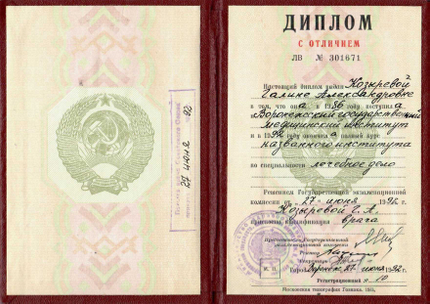 27 июня 92
ДИПЛОМ
С ОТЛИЧИЕМ
ЛВ № 301671
Настоящий диплом выдан Козыревой
Галине Александровне
в том, что она в 1986 году поступила
в Воронежский государственный
медицинский институт
и в 1992 году окончила полный курс
названного института
по специальности лечебное дело
Решением Государственной экзаменационной
комиссии от 27 июня 1992 г.
Козыревой Г. А.
присвоена квалификация врача
Председатель Государственной
экзаменационной комиссии
Ректор
Секретарь
М. П.
Город Воронеж 27 июня 1992 г.
Регистрационный №
Московская типография Гознака. 1991.